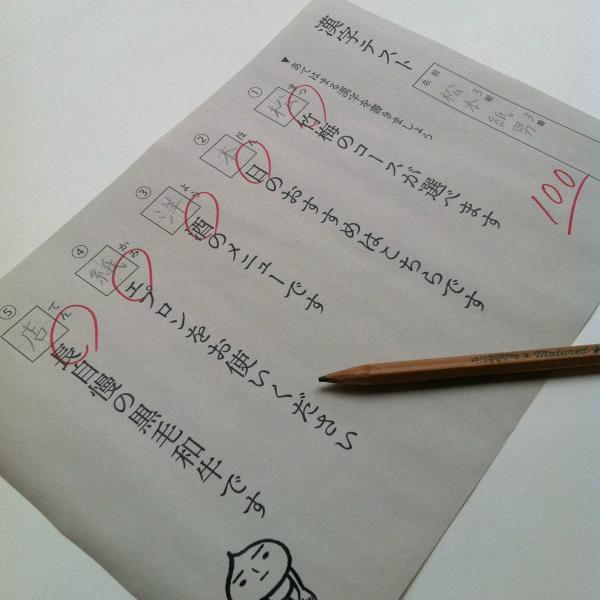 漢字テスト
名前 3組 3番
松本紙男
100
▼あてはまる漢字を書きましょう
① 松竹梅のコースが選べます
まつ
② 本日のおすすめはこちらです
ほ
③ 洋酒のメニューです
よう
④ 紙エプロンをお使いください
かみ
⑤ 店長自慢の黒毛和牛です
てん
Matured